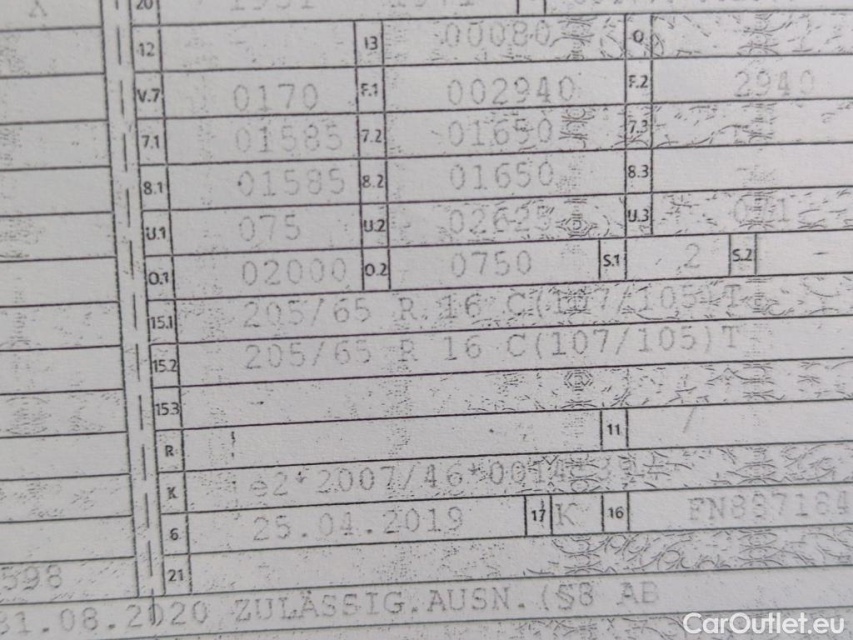 X 20
12 - 13 00080 Q
V.7 0170 F.1 002940 F.2 2940
7.1 01585 7.2 01650 7.3
8.1 01585 8.2 01650 8.3 -
U.1 075 U.2 02625 U.3
O.1 02000 O.2 0750 S.1 2 S.2 -
15.1 205/65 R 16 C(107/105)T
15.2 205/65 R 16 C(107/105)T
15.3
R 11 /
K e2*2007/46*0014
6 25.04.2019 17 K 16 FN887184
21
598
31.08.2020 ZULÄSSIG.AUSN.(§8 AB
CarOutlet.eu